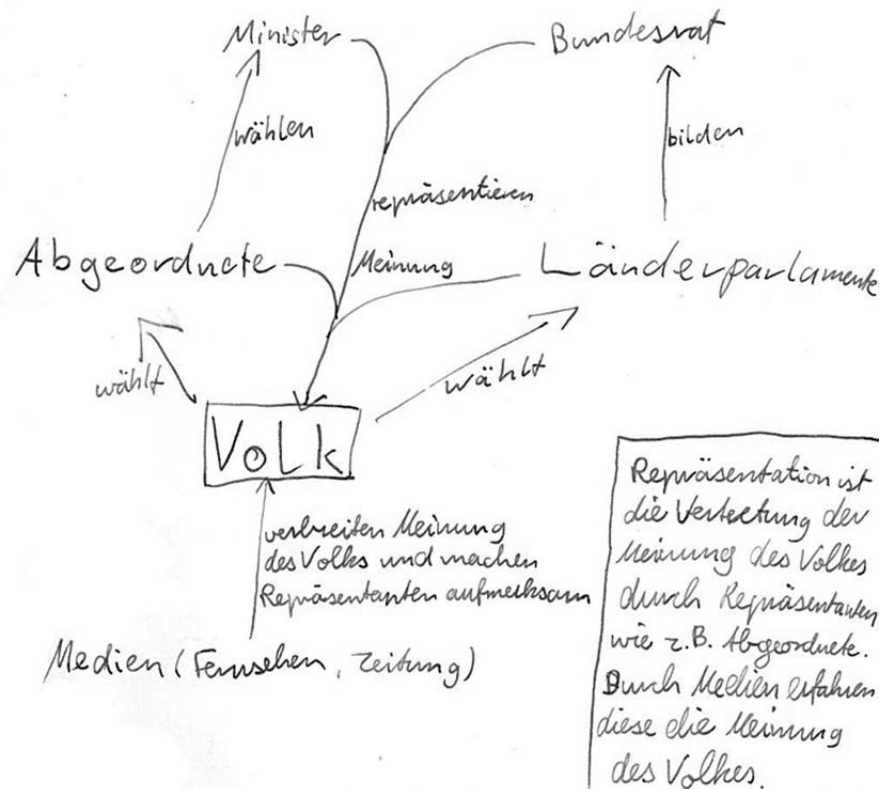 Minister
Bundesrat
wählen
bilden
repräsentieren
Abgeordnete
Meinung
Länderparlamente
wählt
wählt
Volk
verbreiten Meinung
des Volks und machen
Repräsentanten aufmerksam
Medien (Fernsehen, Zeitung)
Repräsentation ist
die Vertretung der
Meinung des Volkes
durch Repräsentanten
wie z.B. Abgeordnete.
Durch Medien erfahren
diese die Meinung
des Volkes.